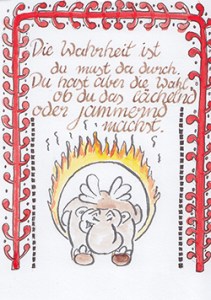 Die Wahrheit ist
du must da durch.
Du hast aber die Wahl
ob du das lächelnd
oder jammernd
machst.